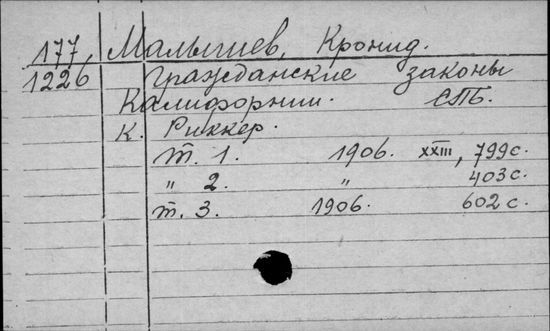 177, Малышев, Кронид.
1226 Гражданские законы
Калифорнии. СПБ.
К. Риккер.
т. 1. 1906. XXIII, 799 с.
" 2. " 403 с.
т. 3. 1906. 602 с.